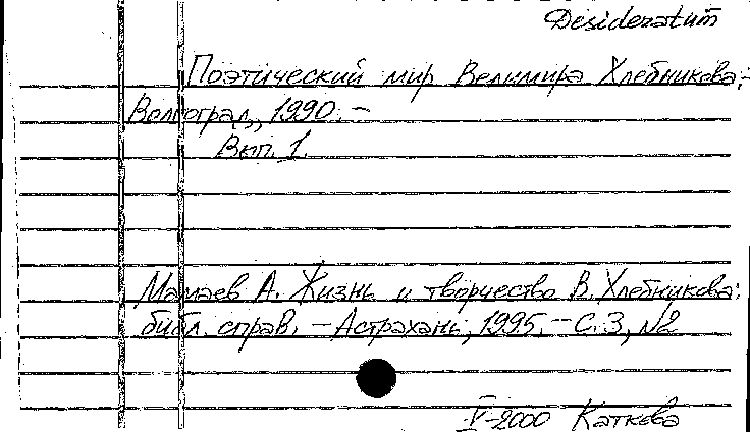 Desideratum
Поэтический мир Велимира Хлебникова.-
Волгоград, 1990. -
Вып. 1.
Мамаев А. Жизнь и творчество В. Хлебникова:
библ. справ. - Астрахань, 1995. - С. 3, №2
V-2000 Каткова